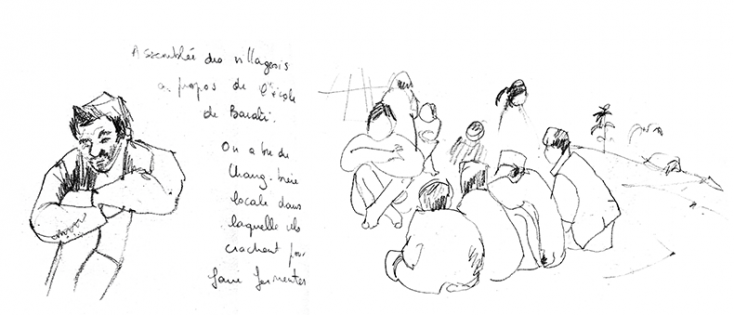 Assemblée des villageois
a propos de l'école
de Barati.
On a bu du
Chang, bière
locale dans
laquelle ils
crachent pour
faire fermenter